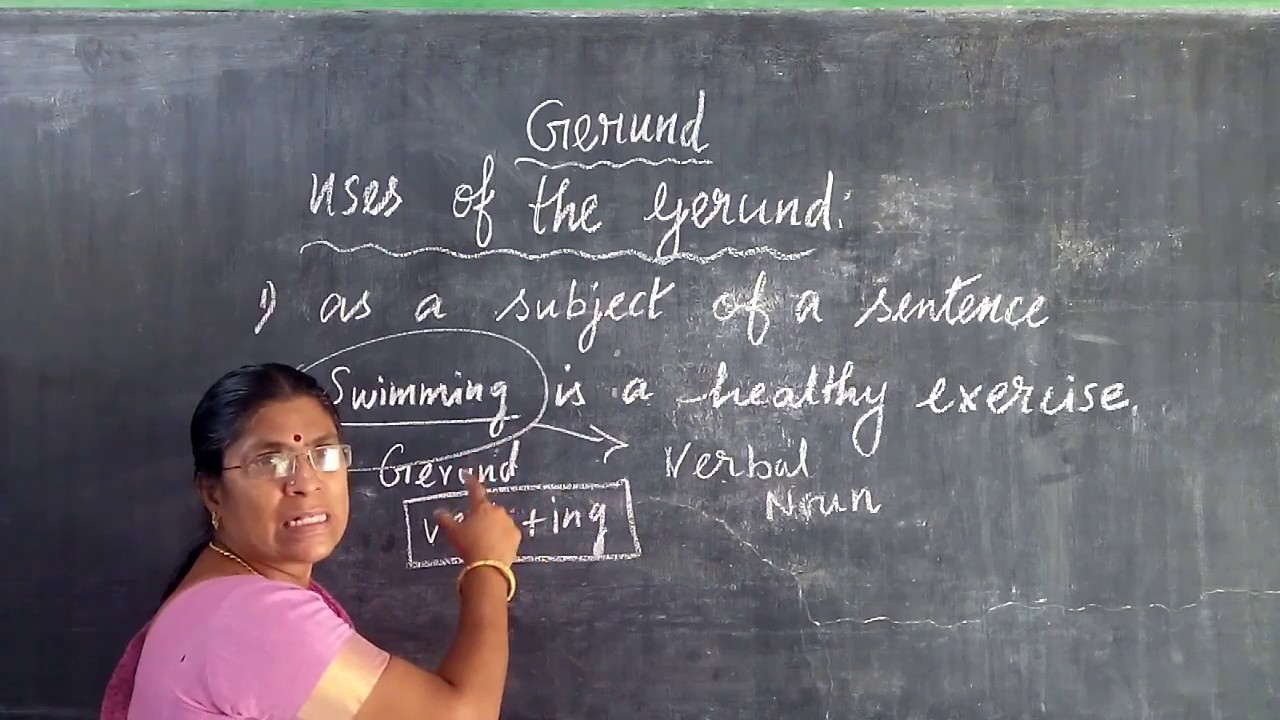 Gerund
Uses of the Gerund:
1) as a subject of a sentence
Swimming is a healthy exercise.
Gerund
Verbal
Noun
+ing